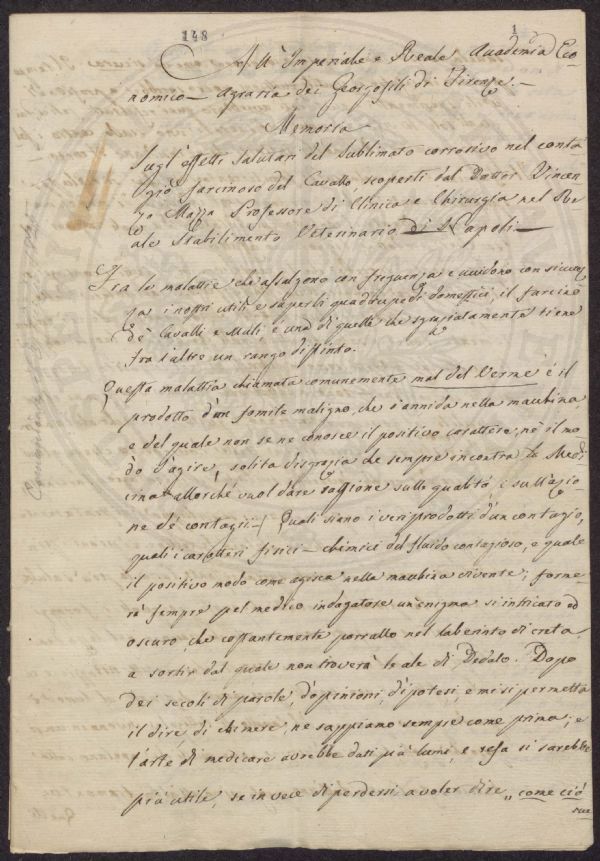 148
1
All' Imperiale e Reale Accademia Eco-
nomico-Agraria dei Georgofili di Firenze.
Memoria
Sugl'effetti salutari del Sublimato corrosivo nel conta-
gio farcinoso del Cavallo, scoperti dal Dottor Vincen-
zo Mazza Professore di Clinica e Chirurgia nel Re-
ale Stabilimento Veterinario di Napoli
Tra le malattie che assalgono con frequenza e uccidono con sicurez-
za i nostri utili e superbi quadrupedi domestici, il farcino
de' Cavalli e Muli, è una di quelle che sgraziatamente tiene
fra l'altre un rango distinto.
Questa malattia chiamata comunemente mal del Verme è il
prodotto d'un fomite maligno, che s'annida nella macchina,
e del quale non se ne conosce il positivo carattere, nè il mo-
do d'agire, solita disgrazia che sempre incontra la Medi-
cina allorchè vuol dare raggione sulla qualità, e sull'azio-
ne de' contagii. Quali siano i veri prodotti d'un contagio,
quali i caratteri fisici-chimici del fluido contagioso, e quale
il positivo modo come agisca nella macchina vivente, forme-
rà sempre pel medico indagatore un'enigma sì intricato ed
oscuro, che costantemente porrallo nel laberinto di creta
a sortir dal quale non troverà le ale di Dedalo. Dopo
dei secoli di parole, d'opinioni, d'ipotesi, e mi si permetta
il dire, di chimere, ne sappiamo sempre come prima; e
l'arte di medicare avrebbe dati più lumi, e resa si sarebbe
più utile, se invece di perdersi a voler dire „ come ciò